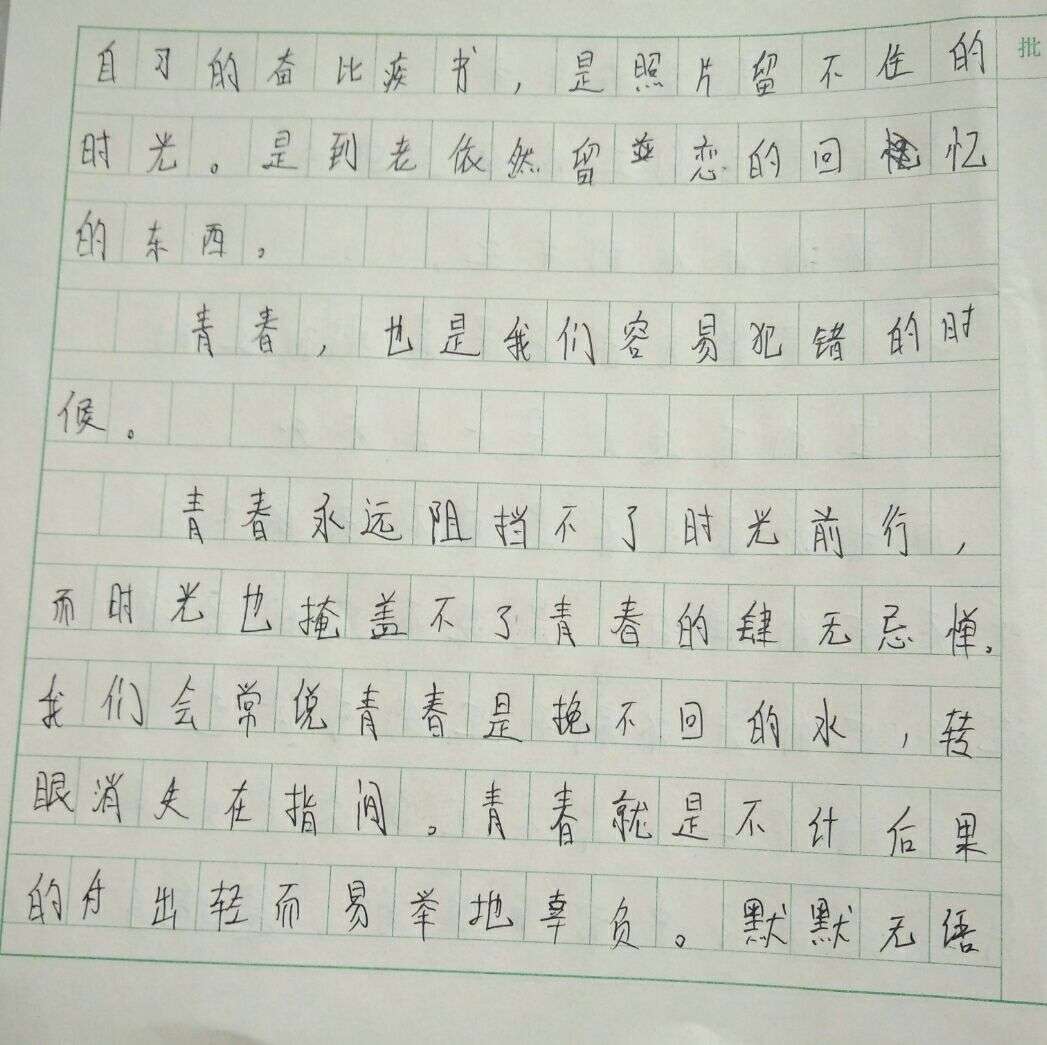 自习的奋比疾书，是照片留不住的 批
时光。是到老依然留恋的回忆
的东西。
青春，也是我们容易犯错的时
候。
青春永远阻挡不了时光前行，
而时光也掩盖不了青春的肆无忌惮。
我们会常说青春是挽不回的水，转
眼消失在指间。青春就是不计后果
的付出轻而易举地辜负。默默无语